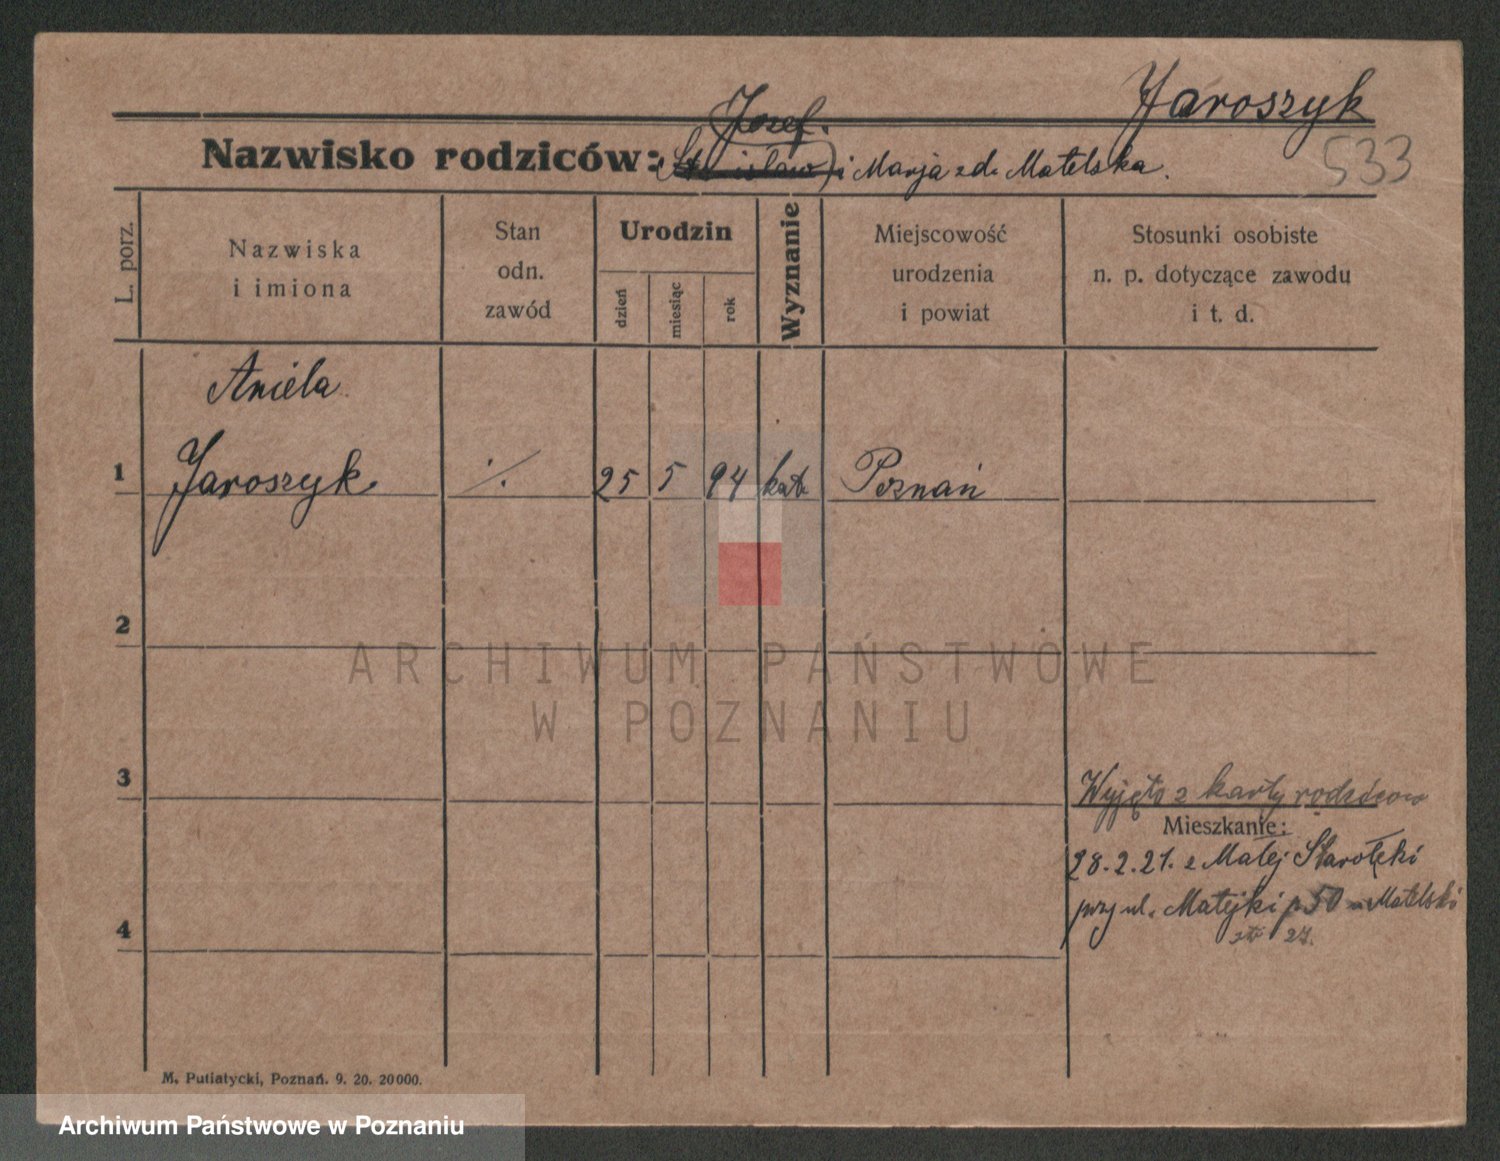 Jaroszyk
Józef.
Nazwisko rodziców: (Stanisław) i Marja zd. Matelska.
533
L. porz.
Nazwiska
i imiona
Stan
odn.
zawód
Urodzin
dzień
miesiąc
rok
Wyznanie
Miejscowość
urodzenia
i powiat
Stosunki osobiste
n. p. dotyczące zawodu
i t. d.
Aniela
1 Jaroszyk ·/. 25 5 94 kat. Poznań
2
ARCHIWUM PAŃSTWOWE
W POZNANIU
3
Wyjęto z karty rodziców
Mieszkanie:
28.2.21. z Małej Starołęki
przy ul. Matejki 50 Matelski
4
27.
M. Putiatycki, Poznań. 9. 20. 20000.
Archiwum Państwowe w Poznaniu